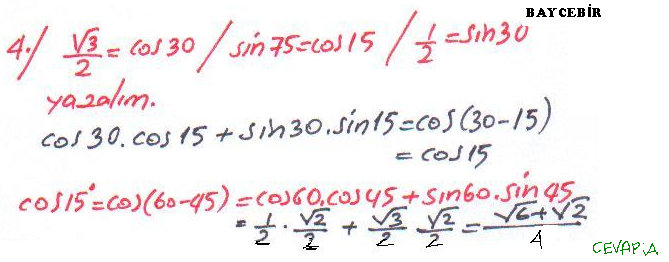 BAYCEBİR
4./ √3/2 = cos30 / sin75=cos15 / 1/2 = sin30
yazalım.
cos30.cos15 + sin30.sin15=cos(30-15)
= cos15
cos15°=cos(60-45) = cos60.cos45 + sin60.sin45
= 1/2 . √2/2 + √3/2 √2/2 = √6+√2/4
CEVAP:A